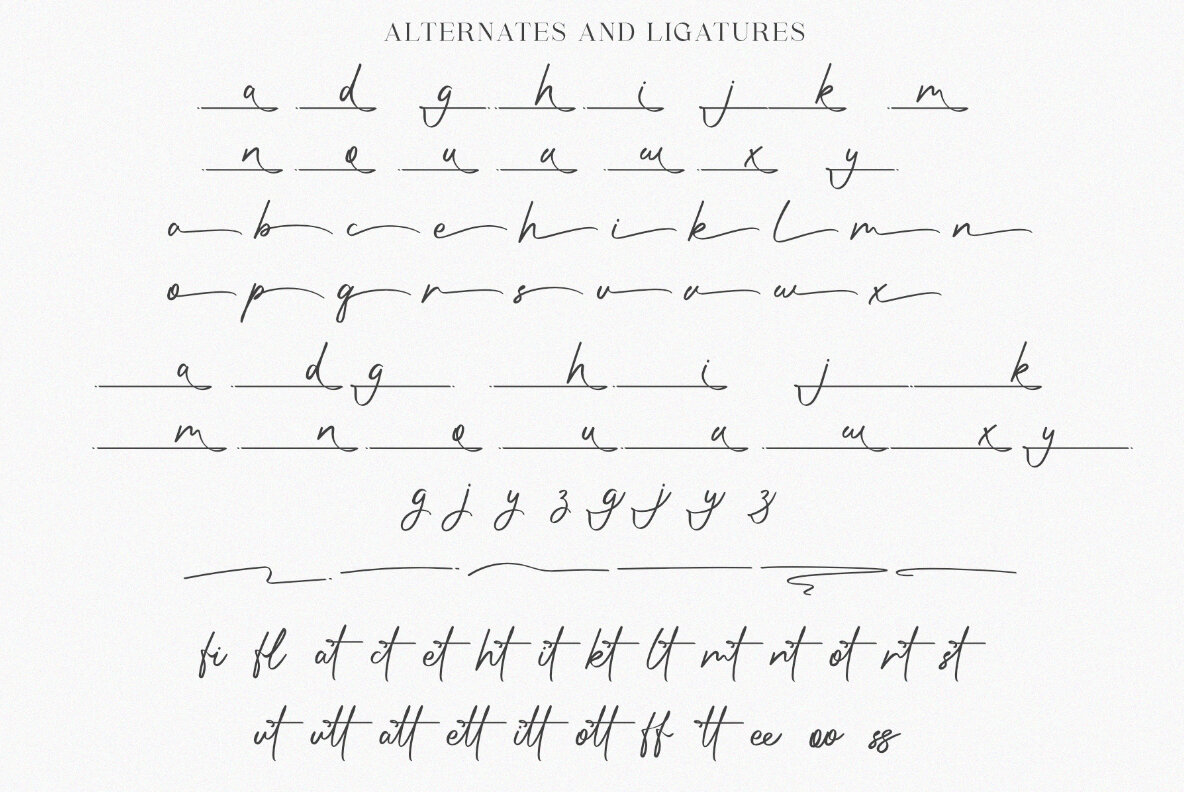 ALTERNATES AND LIGATURES
a d g h i j k m
n o u a w x y
a b c e h i k l m n
o p q r s v u w x
a d g h i j k
m n o u a w x y
g j y z g j y z
fi fl at ct et ht it kt lt mt nt ot rt st
ut utt att ett itt ott ff tt ee oo ss